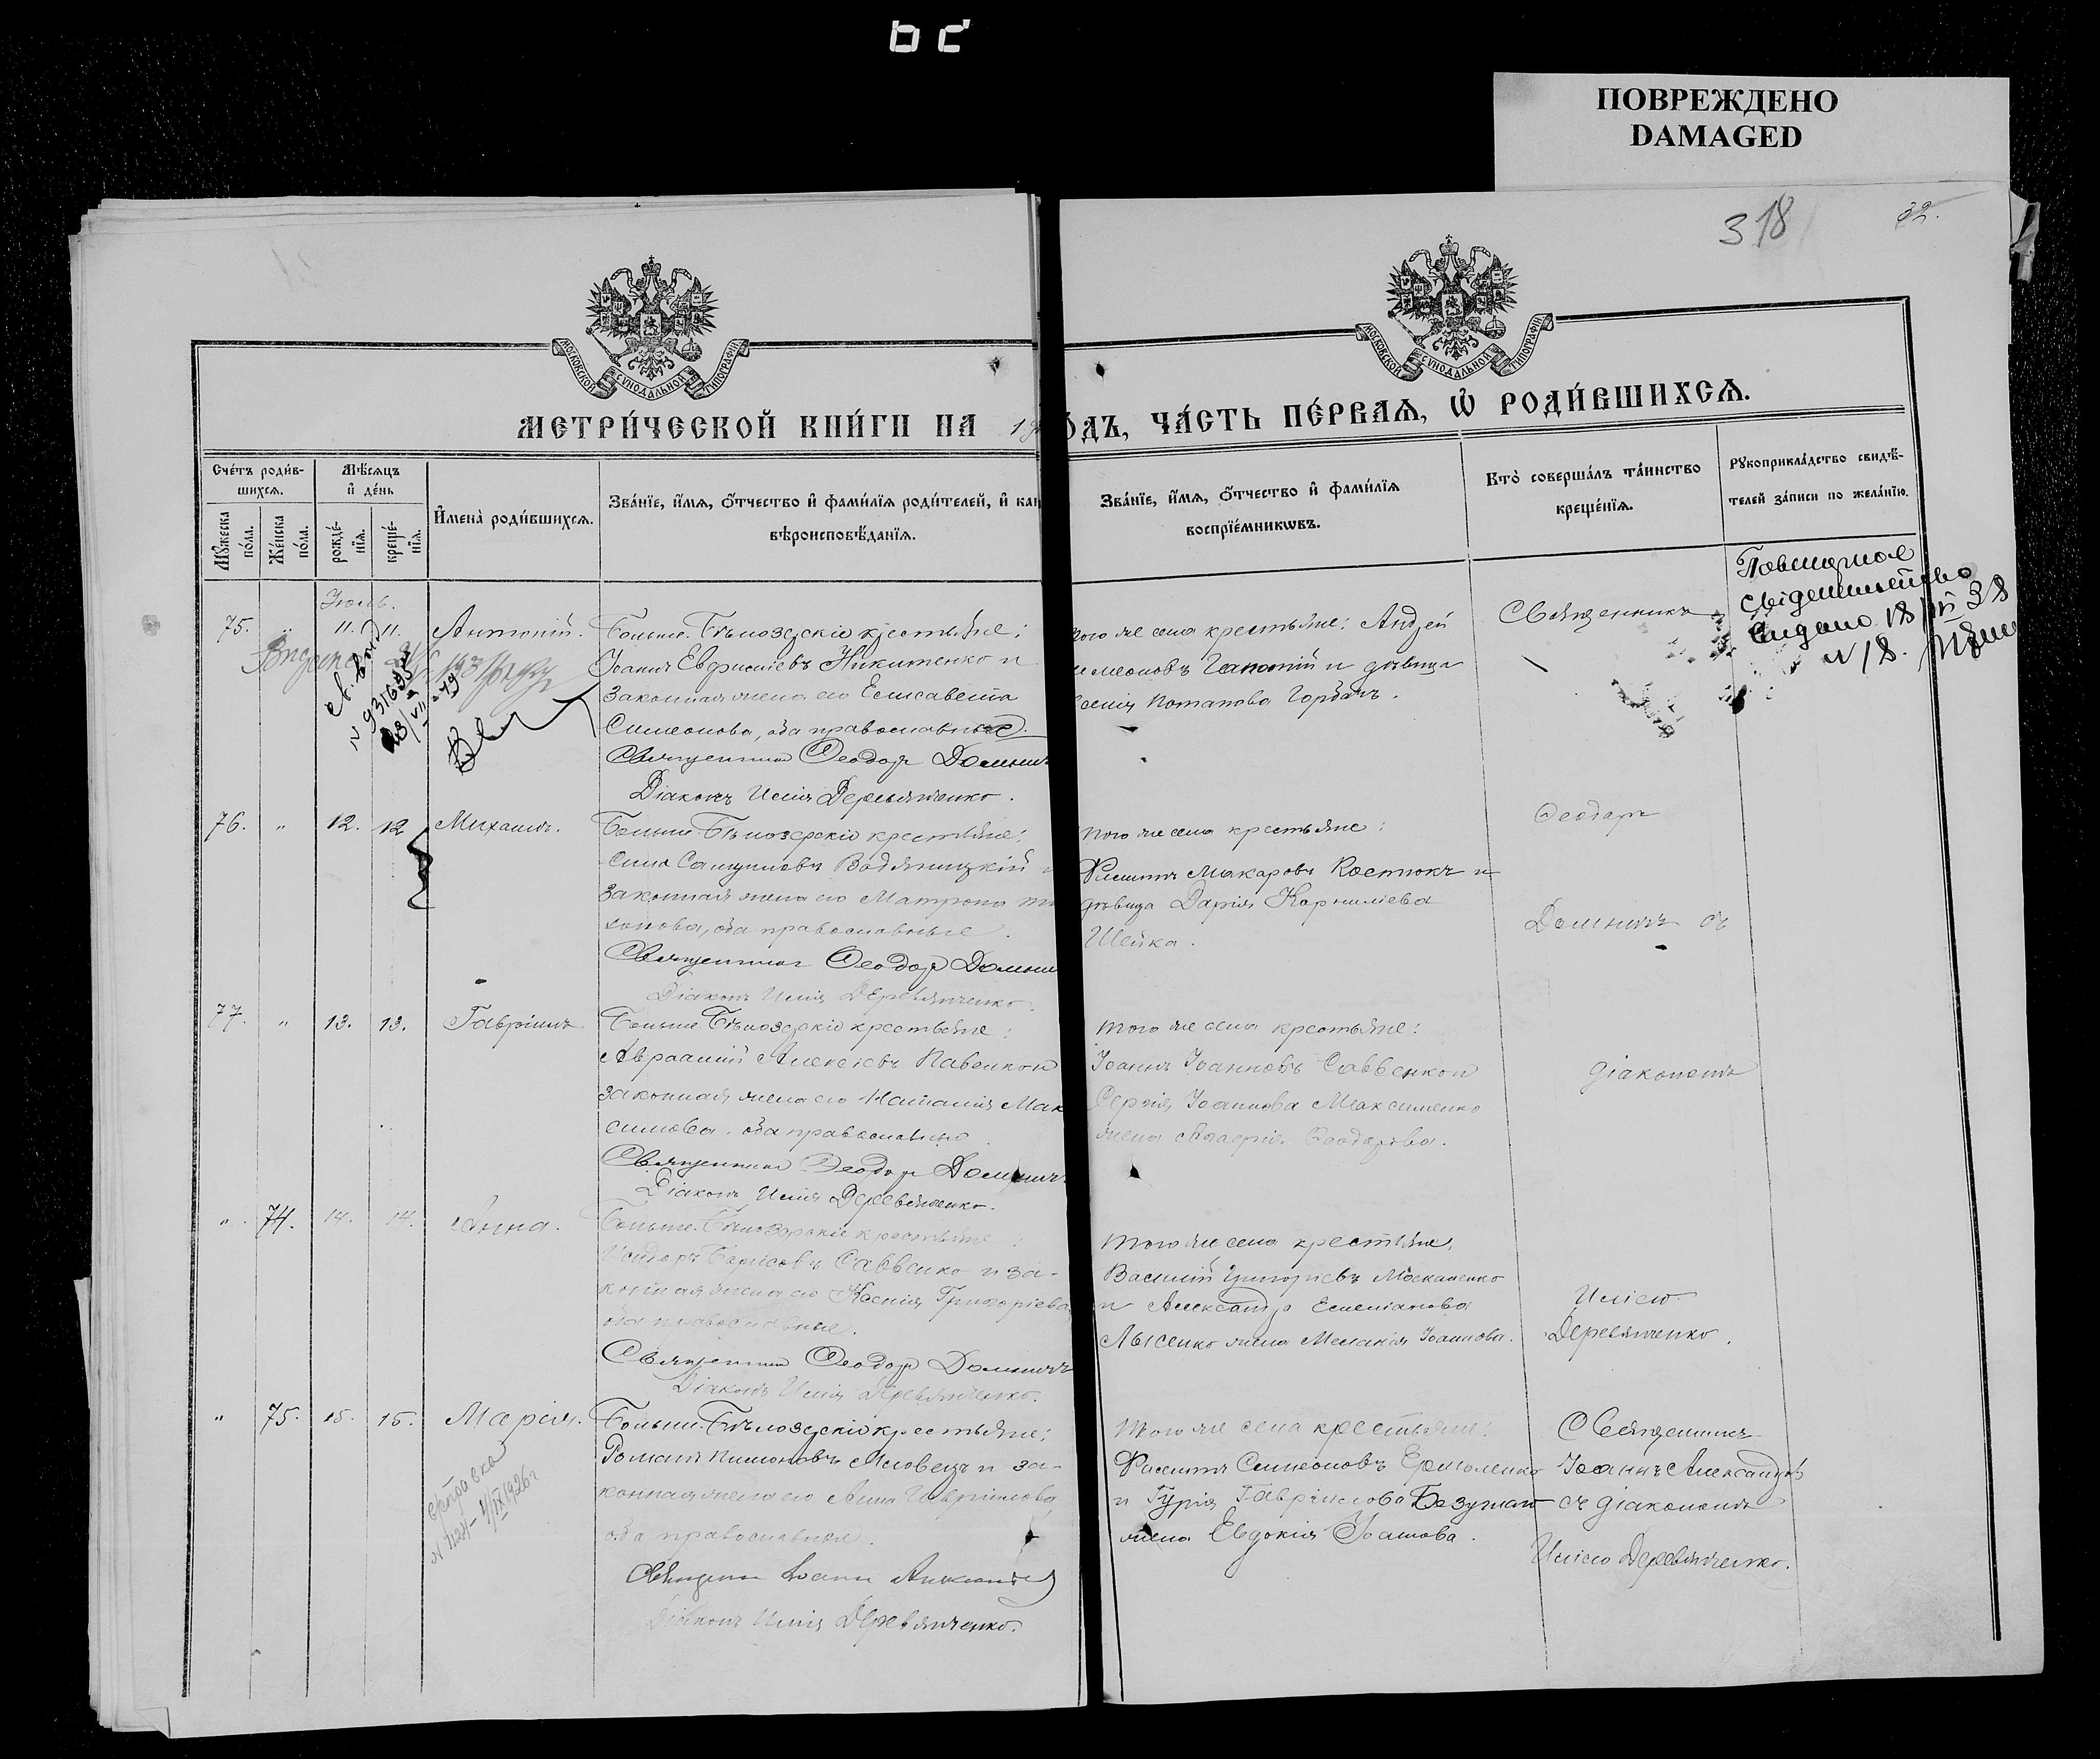 ПОВРЕЖДЕНО
DAMAGED
318
32.
МОСКОВСКОЙ СУНОДАЛЬНОЙ ТИПОГРАФІИ
МОСКОВСКОЙ СУНОДАЛЬНОЙ ТИПОГРАФІИ
МЕТРИ́ЧЕСКОЙ КНИ́ГИ НА 19
ОДЪ, ЧА́СТЬ ПЕ́РВАЯ, Ѡ҆ РОДИ́ВШИХСЯ.
Сче́тъ роди́в-
шихся.
Мꙋжеска
по́ла.
Же́нска
по́ла.
Мѣ́сяцъ
и҆ де́нь
рожде́-
нїя.
креще́-
нїя.
И҆мена̀ роди́вшихся.
Зва́нїе, и҆́мя, ѻ҆́тчество и҆ фами́лїя роди́телей, и҆ как
вѣроисповѣ́данїя.
Зва́нїе, и҆́мя, ѻ҆́тчество и҆ фами́лїя
воспрїе́мникѡвъ.
Кто̀ соверша́лъ та́инство
креще́нїя.
Рꙋкоприкла́дство свидѣ́-
телей за́писи по жела́нїю.
Іюль.
75. " 11. 11. Антоній.
Больше-Бѣлозерскіе крестьяне:
Іоаннъ Евфиміевъ Никитенко и
законная жена его Елисавета
Симеонова, оба православные.
Священникъ Ѳеодоръ Домнич
Діаконъ Илія Деревянченко.
того же села крестьяне: Андрей
имеоновъ Гапотій и дѣвица
сенія Потапова Горбачъ.
Священникъ
Повторное
свідетельство
видано 18/VII 38
N 18.
76. " 12. 12 Михаилъ.
Больше-Бѣлозерскіе крестьяне:
Сила Самуиловъ Водяницкій и
законная жена его Матрона Ти
хонова, оба православные.
Священникъ Ѳеодоръ Домни
Діаконъ Илія Деревянченко.
того же села крестьяне:
Филиппъ Макаровъ Костюкъ и
дѣвица Дарія Корниліева
Шейка.
Ѳеодоръ
Домничъ съ
77. " 13. 13. Гавріилъ.
Больше-Бѣлозерскіе крестьяне:
Авраамій Алексіевъ Павенко и
законная жена его Наталія Мак
симова, оба православные.
Священникъ Ѳеодоръ Домничъ
Діаконъ Илія Деревянченко.
того же села крестьяне:
Іоаннъ Іоанновъ Савенко и
Сергія Іоаннова Максименко
жена Ѳеодорова.
діакономъ
" 74. 14. 14. Анна.
Больше-Бѣлозерскіе крестьяне:
Исидоръ Борисовъ Савенко и за-
конная жена его Ксенія Григоріева,
оба православные.
Священникъ Ѳеодоръ Домничъ
Діаконъ Илія Деревянченко.
того же села крестьяне:
Василій Григоріевъ Москаленко
и Александра Емеліанова
Лысенко жена Меланія Іоаннова.
Иліею
Деревянченко.
" 75. 15. 15. Марія.
Больше-Бѣлозерскіе крестьяне:
Романъ Пимоновъ Иловецъ и за-
конная жена его Анна Гавріилова,
оба православные.
Священникъ Іоаннъ Александров
Діаконъ Илія Деревянченко.
того же села крестьяне:
Филиппъ Симеоновъ Ермоленко
и Гурія Гавріилова Безуглаго
жена Евдокія Іоаннова.
Священникъ
Іоаннъ Александров
съ діакономъ
Иліею Деревянченко.
справка